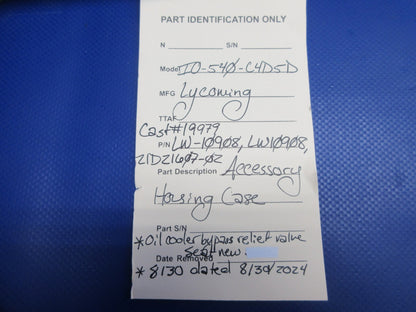 PART IDENTIFICATION ONLY
N ____________ S/N ____________
Model IO-540-C4D5D
MFG Lycoming
TTAF
Cast #19979
P/N LW-10908, LW10908,
21D21607-02
Part Description Accessory
Housing Case
Part S/N
*Oil cooler bypass relief valve
seat new
Date Removed
* 8130 dated 8/30/2024